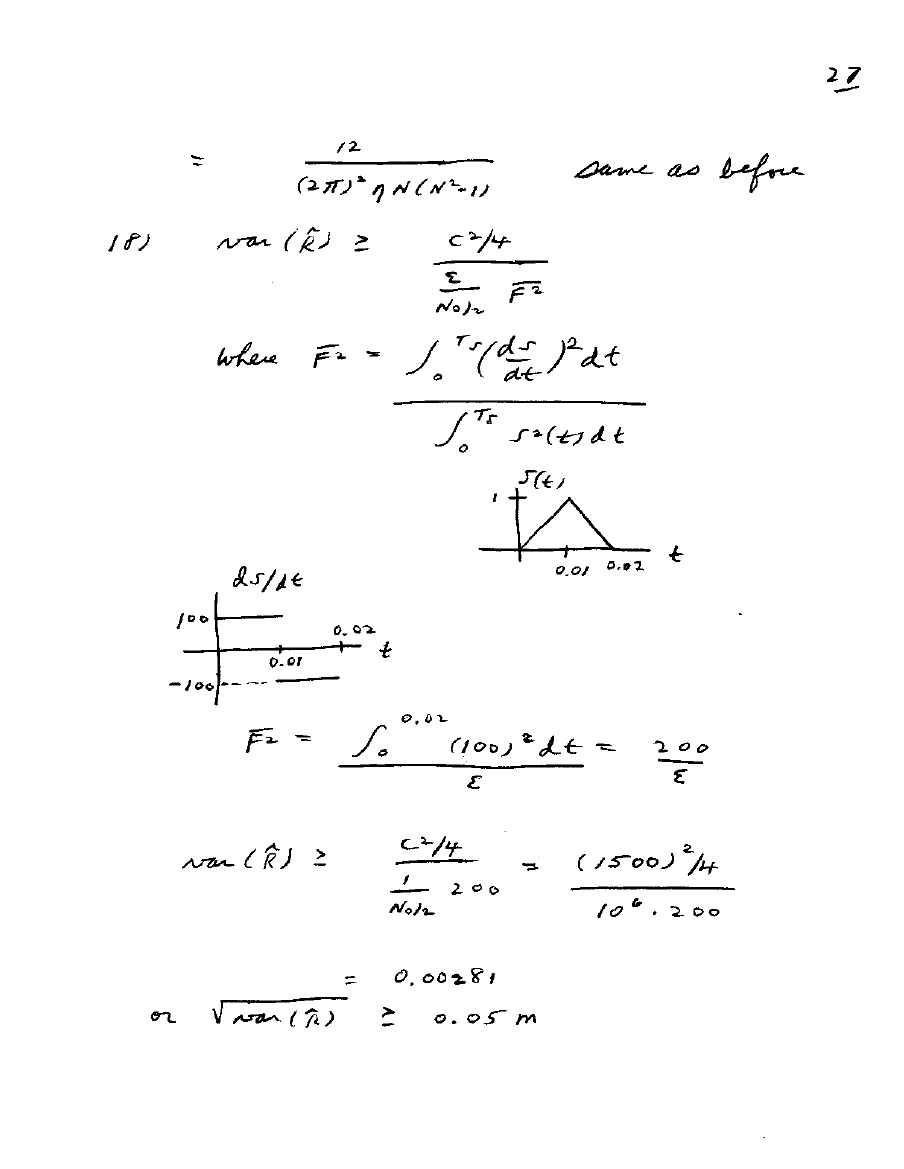 27
= 12 / ((2π)² η N (N²-1)) same as before
18) var (R̂) ≥ (c²/4) / ((ε / (N0/2)) F̅²)
where F̅² = ∫₀^Ts (ds/dt)² dt / ∫₀^Ts s²(t) dt
s(t)
1
t
0.01 0.02
ds/dt
100
0.02
t
0.01
-100
F̅² = ∫₀^0.02 (100)² dt / ε = 200 / ε
var (R̂) ≥ (c²/4) / ((1 / (N0/2)) 200) = (1500)²/4 / (10⁶ · 200)
= 0.00281
or √var (R̂) ≥ 0.05 m